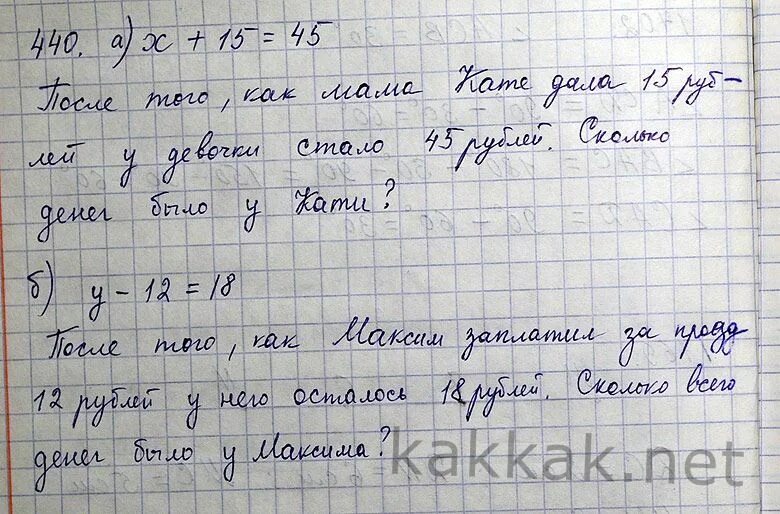 440. а) x + 15 = 45
После того, как мама Кате дала 15 руб-
лей у девочки стало 45 рублей. Сколько
денег было у Кати?
б) y - 12 = 18
После того, как Максим заплатил за проезд
12 рублей у него осталось 18 рублей. Сколько всего
денег было у Максима?
kakkak.net